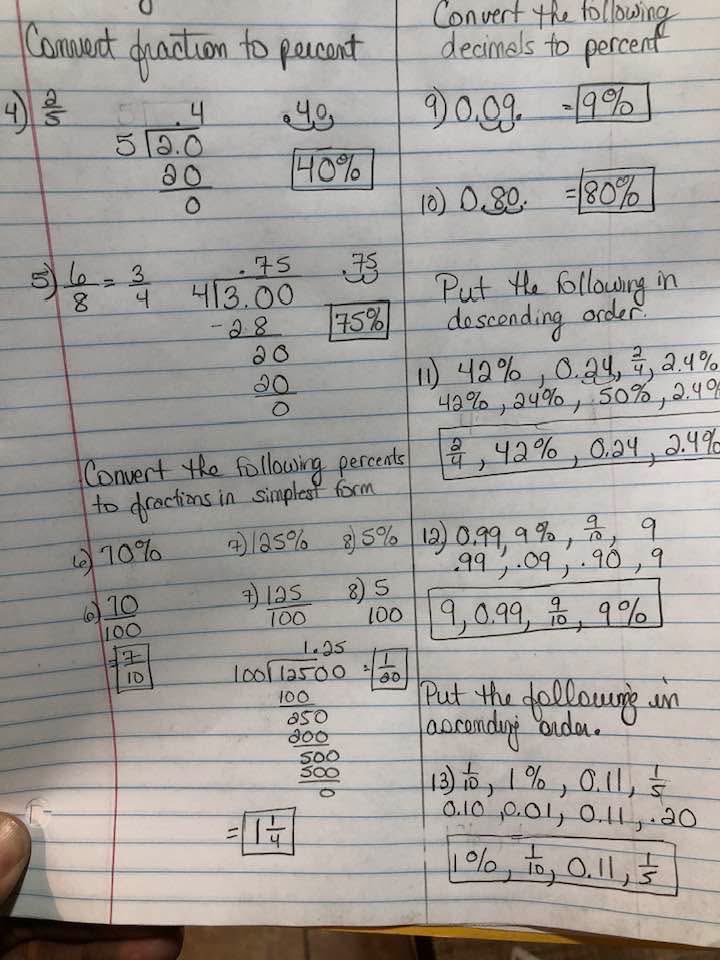 Convert fraction to percent
4) 2/5
.4
5 2.0
20
0
.40
40%
5) 6/8 = 3/4
.75
4 3.00
-28
20
20
0
.75
75%
Convert the following percents
to fractions in simplest form
6) 70% 7) 125% 8) 5%
6) 70/100
= 7/10
7) 125/100
1.25
100 12500
100
250
200
500
500
0
= 1 1/4
8) 5
100
= 1/20
Convert the following
decimels to percent
9) 0.09. = 9%
10) 0.80. = 80%
Put the following in
descending order.
11) 42%, 0.24, 2/4, 2.4%
42%, 24%, .50%, 2.4%
2/4, 42%, 0.24, 2.4%
12) 0.99, 9%, 9/10, 9
.99, .09, .90, 9
9, 0.99, 9/10, 9%
Put the following in
ascending order.
13) 1/10, 1%, 0.11, 1/5
0.10, 0.01, 0.11, .20
1%, 1/10, 0.11, 1/5